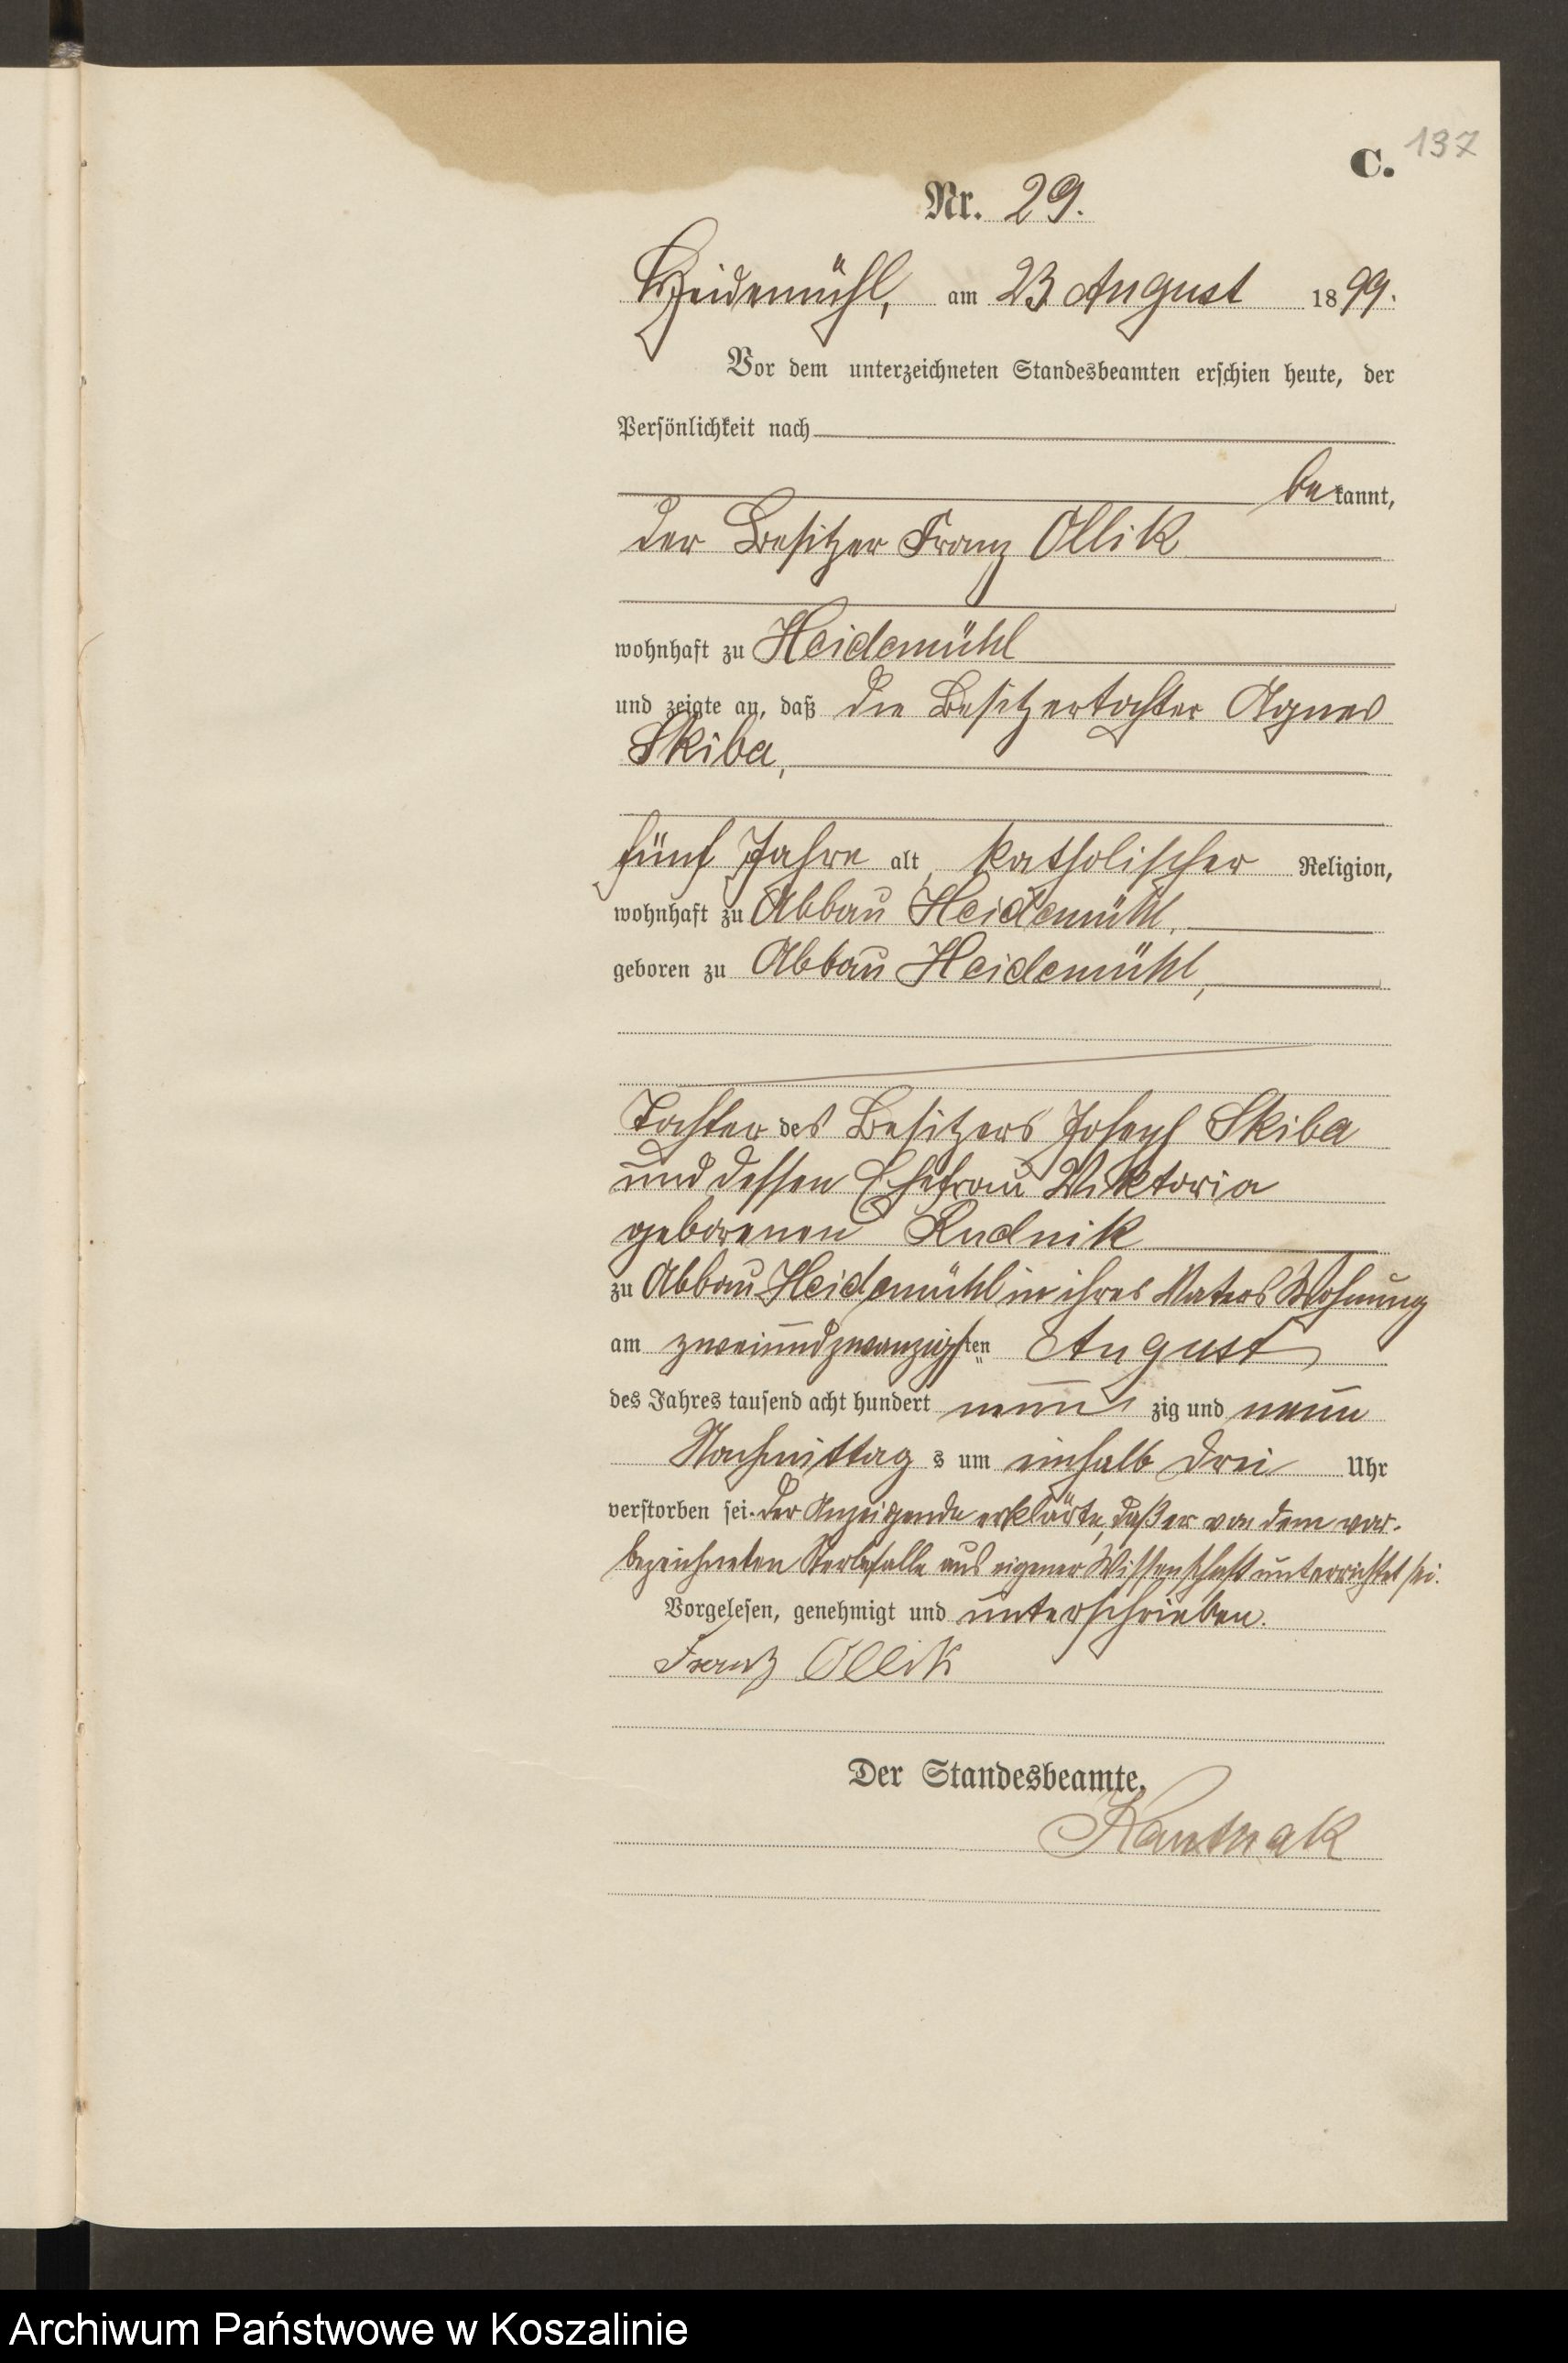 C. 137
Nr. 29.
Heidemühl, am 23 August 1899.
Vor dem unterzeichneten Standesbeamten erschien heute, der
Persönlichkeit nach
bekannt,
der Besitzer Franz Ollik
wohnhaft zu Heidemühl
und zeigte an, daß die Besitzertochter Agnes
Skiba,
fünf Jahre alt, katholischer Religion,
wohnhaft zu Abbau Heidemühl,
geboren zu Abbau Heidemühl,
Tochter des Besitzers Joseph Skiba
und dessen Ehefrau Wiktoria
geborenen Rudnik
zu Abbau Heidemühl in ihres Vaters Wohnung
am zweiundzwanzigsten August
des Jahres tausend acht hundert neun zig und neun
Nachmittag s um einhalb drei Uhr
verstorben sei. Der Anzeigende erklärte, daß er von dem vor-
bezeichneten Sterbefalle aus eigener Wissenschaft unterrichtet sei.
Vorgelesen, genehmigt und unterschrieben.
Franz Ollik
Der Standesbeamte.
Archiwum Państwowe w Koszalinie